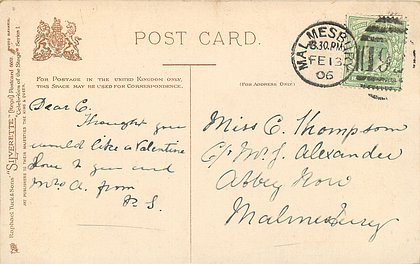 POST CARD.
FOR POSTAGE IN THE UNITED KINGDOM ONLY,
THIS SPACE MAY BE USED FOR CORRESPONDENCE.
(FOR ADDRESS ONLY.)
MALMESBURY
6.30 PM
FE 13
06
Dear C.
Thought you
would like a Valentine
love to you and
Mrs A. from
S.
Miss C. Thompson
C/o Mr J. Alexander
Abbey Row
Malmesbury
Raphael Tuck & Sons' "SILVERETTE" [Regd] Postcard
"Celebrities of the Stage" Series I.